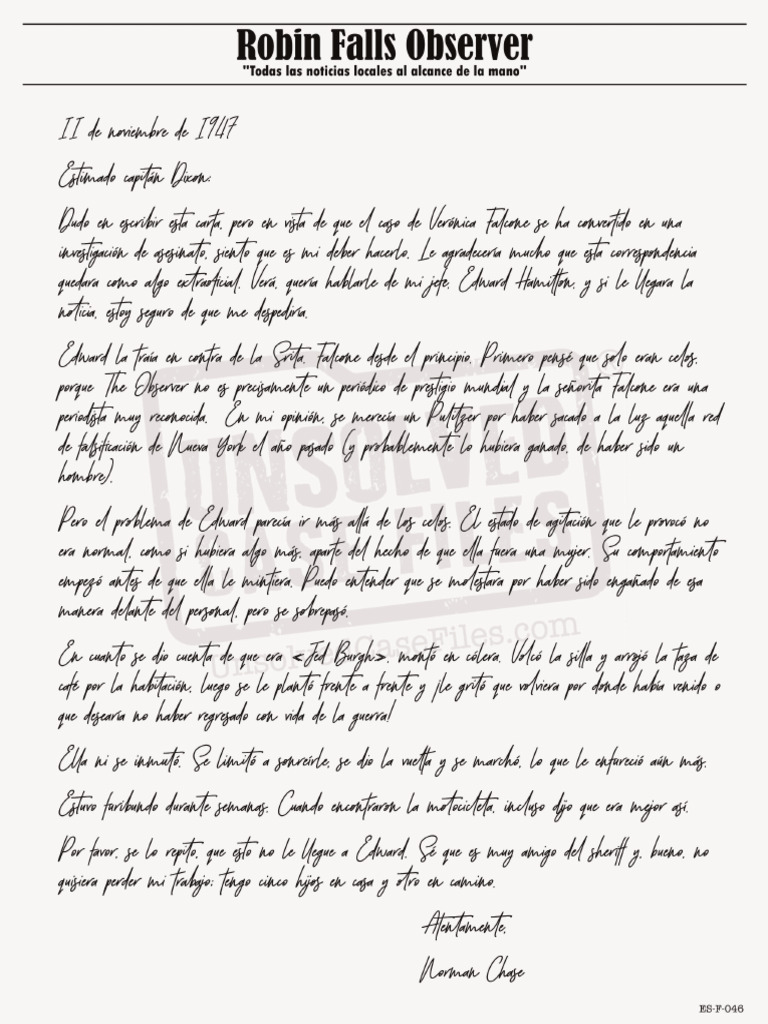 Robin Falls Observer
"Todas las noticias locales al alcance de la mano"
11 de noviembre de 1947
Estimado capitán Dixon:
Dudo en escribir esta carta, pero en vista de que el caso de Verónica Falcone se ha convertido en una
investigación de asesinato, siento que es mi deber hacerlo. Le agradecería mucho que esta correspondencia
quedara como algo extraoficial. Verá, quería hablarle de mi jefe, Edward Hamilton, y si le llegara la
noticia, estoy seguro de que me despediría.
Edward la traía en contra de la Srita. Falcone desde el principio. Primero pensé que solo eran celos,
porque The Observer no es precisamente un periódico de prestigio mundial y la señorita Falcone era una
periodista muy reconocida. En mi opinión, se merecía un Pulitzer por haber sacado a la luz aquella red
de falsificación de Nueva York el año pasado (y probablemente lo hubiera ganado, de haber sido un
hombre).
Pero el problema de Edward parecía ir más allá de los celos. El estado de agitación que le provocó no
era normal, como si hubiera algo más, aparte del hecho de que ella fuera una mujer. Su comportamiento
empezó antes de que ella le mintiera. Puedo entender que se molestara por haber sido engañado de esa
manera delante del personal, pero se sobrepasó.
En cuanto se dio cuenta de que era <Jed Burgh>, montó en cólera. Volcó la silla y arrojó la taza de
café por la habitación, luego se le plantó frente a frente y ¡le gritó que volviera por donde había venido o
que desearía no haber regresado con vida de la guerra!
Ella ni se inmutó. Se limitó a sonreírle, se dio la vuelta y se marchó, lo que le enfureció aún más.
Estuvo furibundo durante semanas. Cuando encontraron la motocicleta, incluso dijo que era mejor así.
Por favor, se lo repito, que esto no le llegue a Edward. Sé que es muy amigo del sheriff y, bueno, no
quisiera perder mi trabajo; tengo cinco hijos en casa y otro en camino.
Atentamente,
Norman Chase
UNSOLVED
CASE FILES
®
UnsolvedCaseFiles.com
ES-F-046